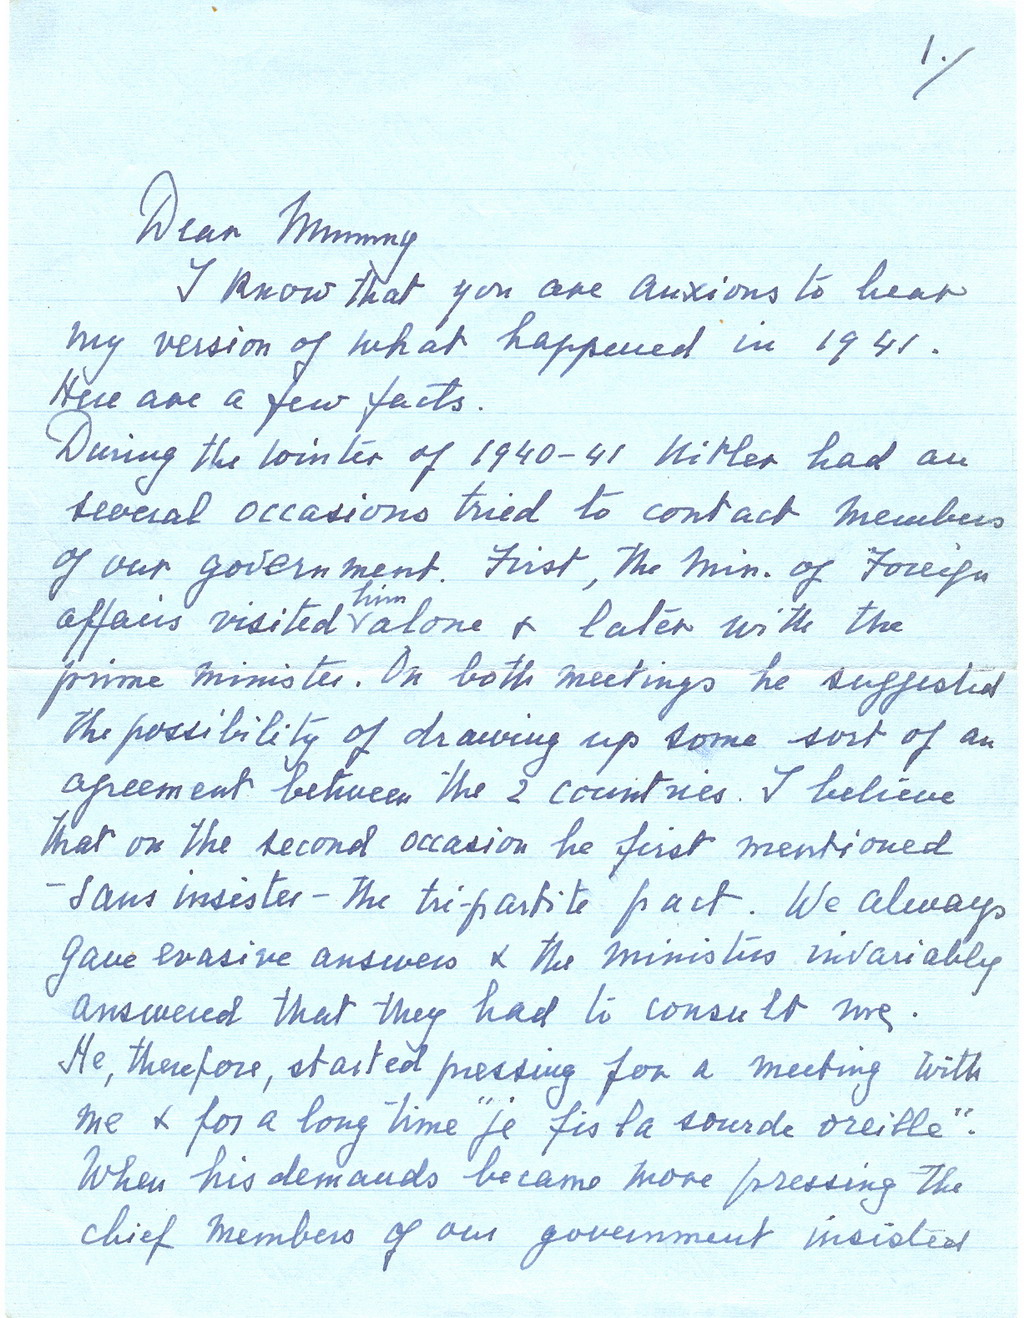 1./
Dear Mummy
I know that you are anxious to hear
my version of what happened in 1941.
Here are a few facts.
During the winter of 1940-41 Hitler had on
several occasions tried to contact members
of our government. First, the Min. of Foreign
affairs visited him alone & later with the
prime minister. On both meetings he suggested
the possibility of drawing up some sort of an
agreement between the 2 countries. I believe
that on the second occasion he first mentioned
- sans insister - the tri-partite pact. We always
gave evasive answers & the ministers invariably
answered that they had to consult me.
He, therefore, started pressing for a meeting with
me & for a long time "je fis la sourde oreille".
When his demands became more pressing the
chief members of our government insisted